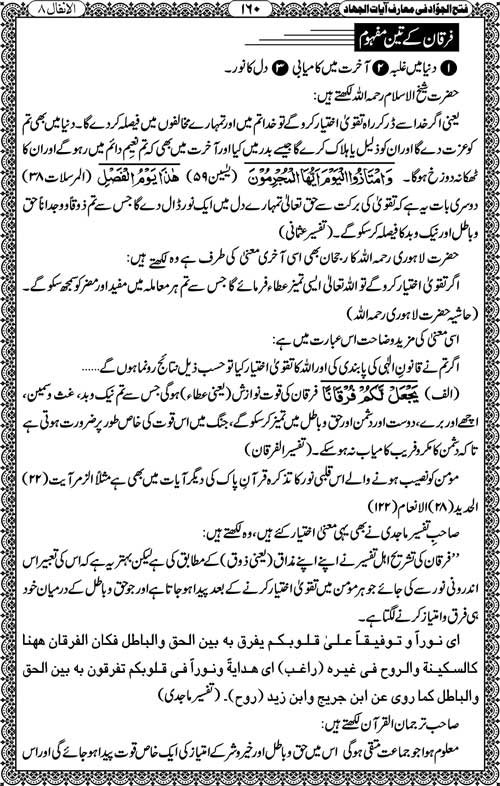 فتح الجوّاد فی معارف آیات الجهاد
۱۶۰
الانفال ۸
فرقان کے تین مفہوم
❶ دنیا میں غلبہ ❷ آخرت میں کامیابی ❸ دل کا نور۔
حضرت شیخ الاسلام رحمہ اللہ لکھتے ہیں:
یعنی اگر خدا سے ڈر کر راہ تقویٰ اختیار کرو گے تو خدا تم میں اور تمہارے مخالفوں میں فیصلہ کر دے گا۔ دنیا میں بھی تم
کو عزت دے گا اور ان کو ذلیل یا ہلاک کرے گا جیسے بدر میں کیا اور آخرت میں بھی کہ تم نعیم دائم میں رہو گے اور ان کا
ٹھکانہ دوزخ ہوگا۔ وَامْتَازُوا الْیَوْمَ اَیُّهَا الْمُجْرِمُوْنَ (یٰسین ۵۹) هٰذَا یَوْمُ الْفَصْلِ (المرسلات ۳۸)
دوسری بات یہ ہے کہ تقویٰ کی برکت سے حق تعالیٰ تمہارے دل میں ایک نور ڈال دے گا جس سے تم ذوقاً و وجداناً حق
و باطل اور نیک و بد کا فیصلہ کر سکو گے۔ (تفسیر عثمانی)
حضرت لاہوری رحمہ اللہ کا رجحان بھی اسی آخری معنیٰ کی طرف ہے وہ لکھتے ہیں:
اگر تقویٰ اختیار کرو گے تو اللہ تعالیٰ ایسی تمیز عطاء فرمائے گا جس سے تم ہر معاملہ میں مفید اور مضر کو سمجھ سکو گے۔
(حاشیہ حضرت لاہوری رحمہ اللہ)
اسی معنٰی کی مزید وضاحت اس عبارت میں ہے:
اگر تم نے قانونِ الٰہی کی پابندی کی اور اللہ کا تقویٰ اختیار کیا تو حسب ذیل نتائج رونما ہوں گے......
(الف) یَجْعَلْ لَّكُمْ فُرْقَانًا فرقان کی قوت نوازش (یعنی عطاء) ہوگی جس سے تم نیک و بد، غث وسمین،
اچھے اور برے، دوست اور دشمن اور حق و باطل میں تمیز کر سکو گے، جنگ میں اس قوت کی خاص طور پر ضرورت ہوتی ہے
تاکہ دشمن کا مکر و فریب کامیاب نہ ہو سکے۔ (تفسیر الفرقان)
مؤمن کو نصیب ہونے والے اس قلبی نور کا تذکرہ قرآن پاک کی دیگر آیات میں بھی ہے مثلاً الزمر آیت (۲۲)
الحدید (۲۸) الانعام (۱۲۲)
صاحب تفسیر ماجدی نے بھی یہی معنٰی اختیار کئے ہیں، وہ لکھتے ہیں:
’’فرقان کی تشریح اہل تفسیر نے اپنے اپنے مذاق (یعنی ذوق) کے مطابق کی ہے لیکن بہتر یہ ہے کہ اس کی تعبیر اس
اندرونی نور سے کی جائے جو ہر مؤمن میں تقویٰ اختیار کرنے کے بعد پیدا ہو جاتا ہے اور جو حق و باطل کے درمیان خود
ہی فرق و امتیاز کرنے لگتا ہے۔
ای نوراً و توفیقاً علیٰ قلوبکم یفرق به بین الحق والباطل فکان الفرقان ههنا
کالسکینة والروح فی غیره (راغب) ای هدایةً ونوراً فی قلوبکم تفرقون به بین الحق
والباطل کما روی عن ابن جریج وابن زید (روح)۔ (تفسیر ماجدی)
صاحب ترجمان القرآن لکھتے ہیں:
معلوم ہوا جو جماعت متقی ہوگی اس میں حق و باطل اور خیر و شر کے امتیاز کی ایک خاص قوت پیدا ہو جائے گی اور اس